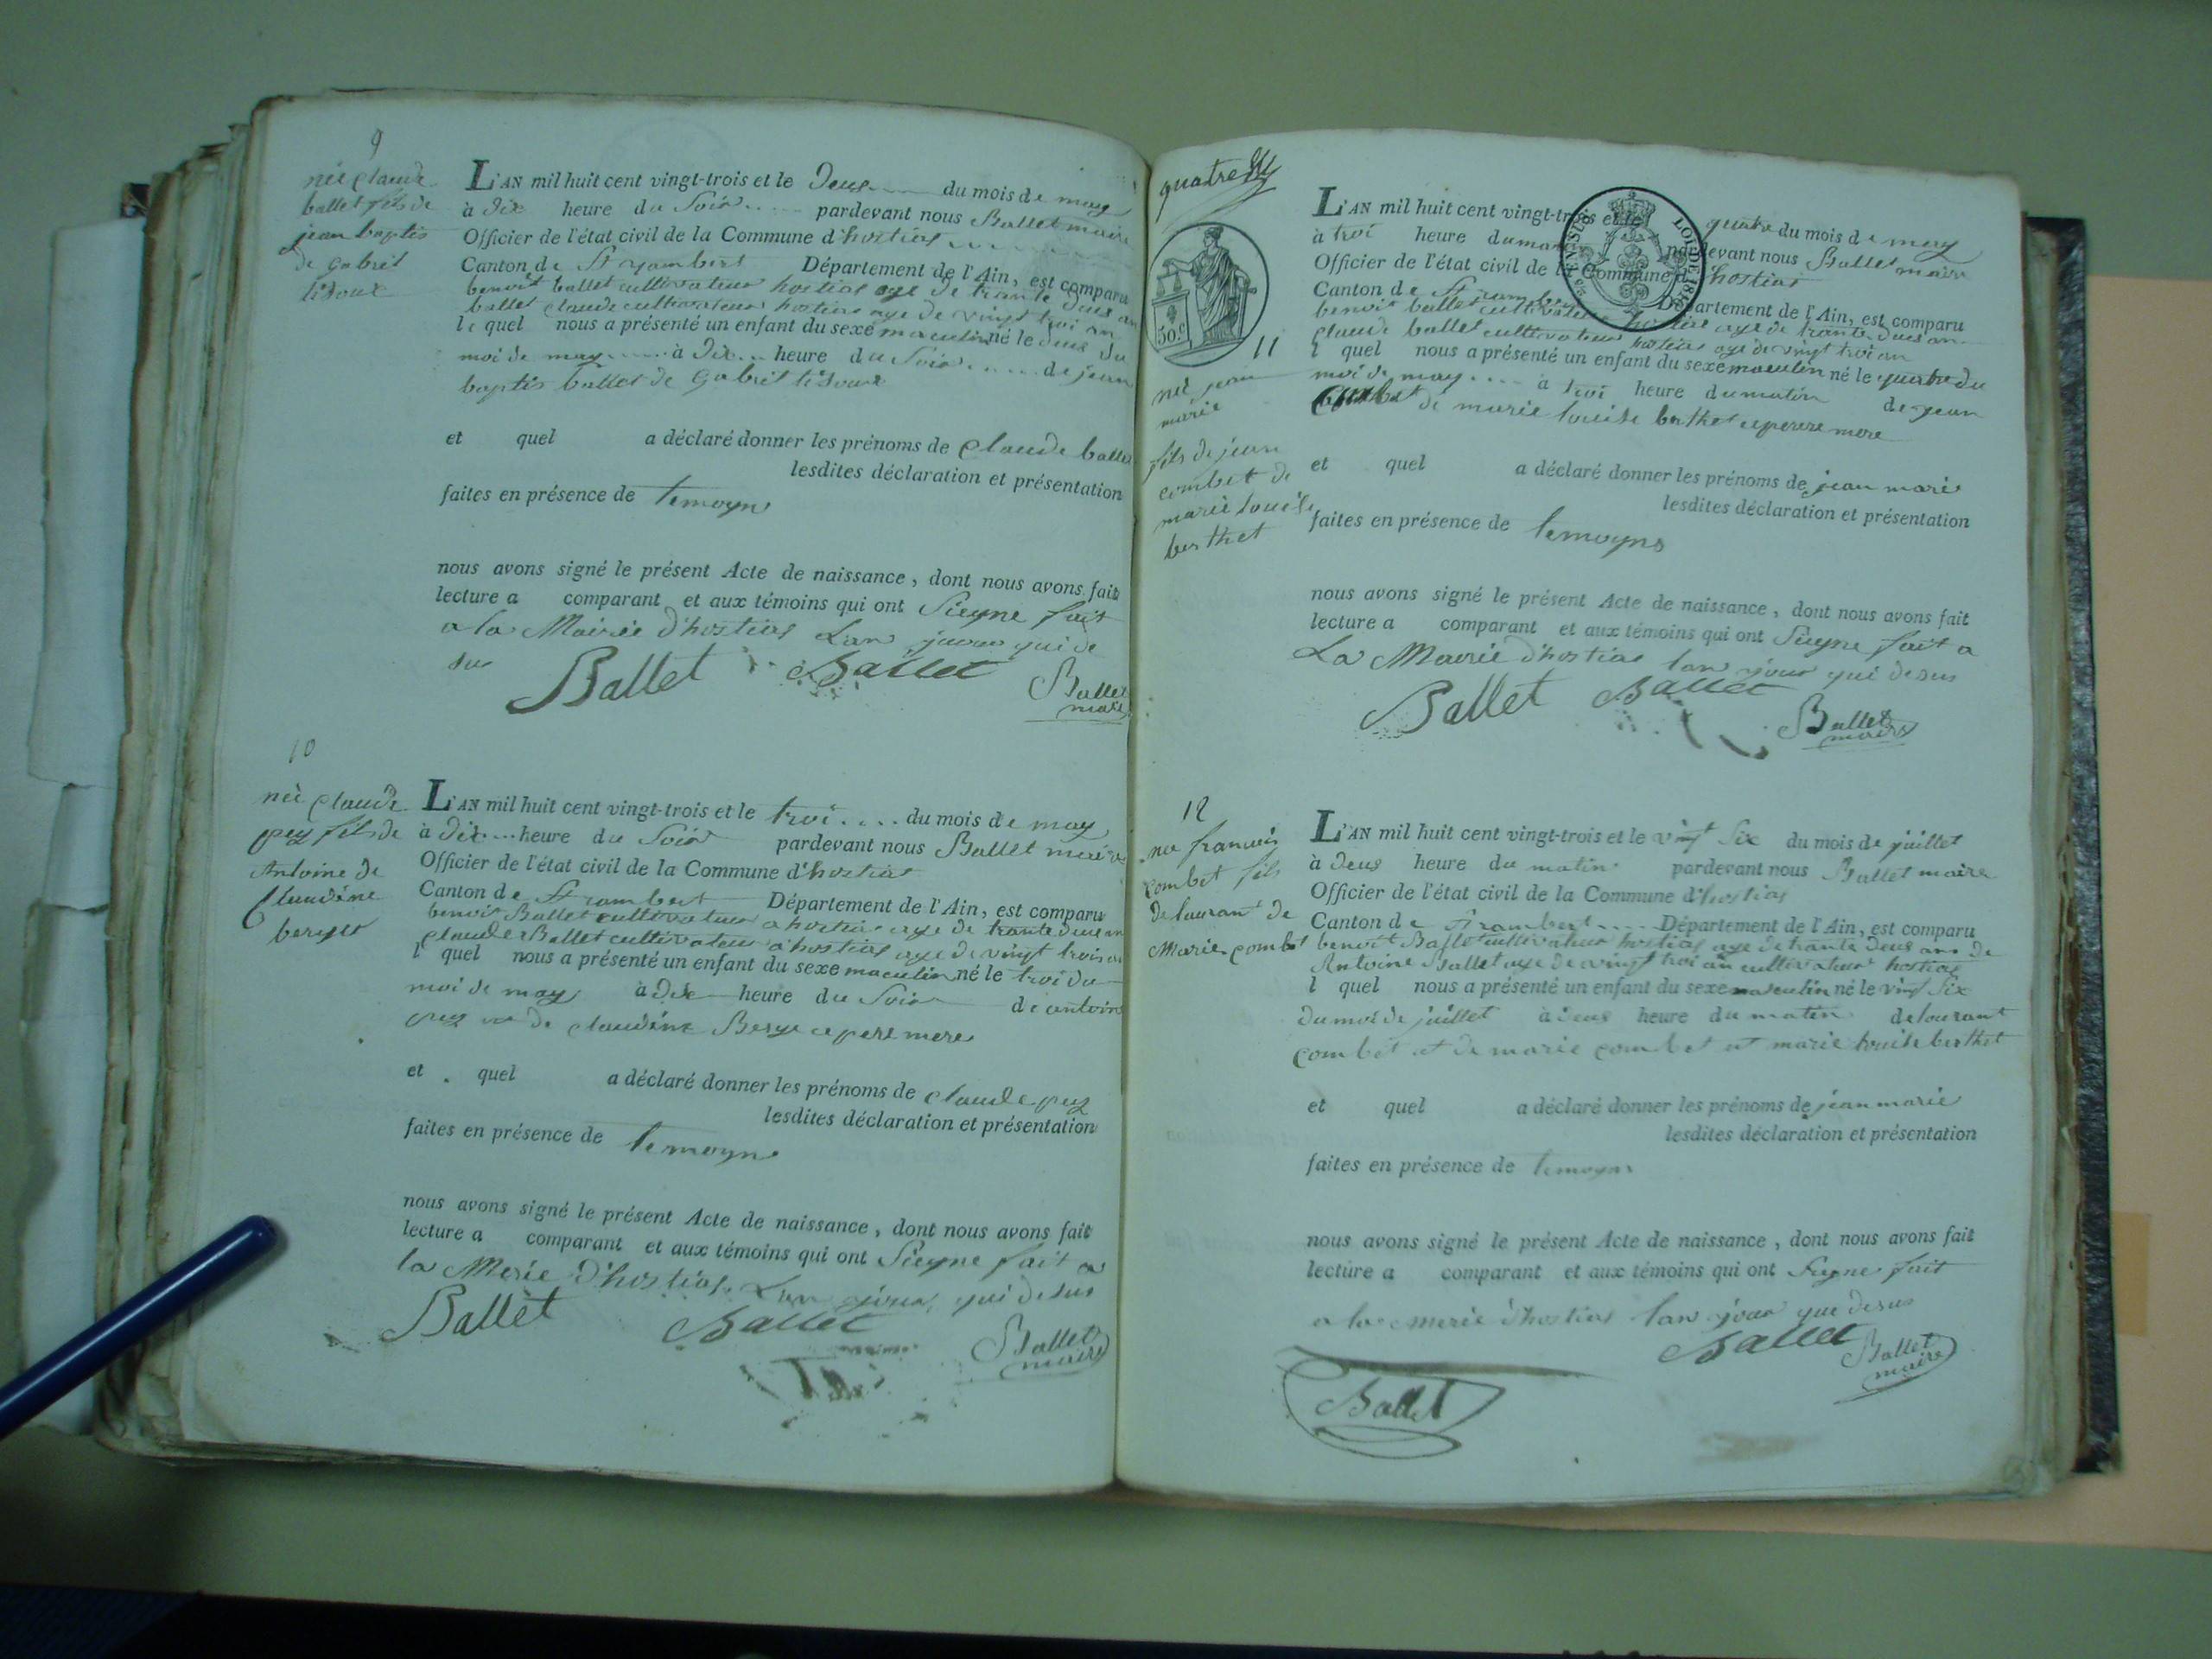 9
née claude
ballet fils de
jean baptis
de Gabriel
L'AN mil huit cent vingt-trois et le Deux du mois de may
à dix heure du Soir pardevant nous Ballet maire
Officier de l'état civil de la Commune d'hostias
Canton de St rambert Département de l'Ain, est comparu
benoit ballet cultivateur hostias age de trante deux an
ballet claude cultivateur hostias age de vingt troi an
le quel nous a présenté un enfant du sexe masculin né le deux du
moi de may à Dix heure du Soir de jean
baptis ballet de Gabriel
et quel a déclaré donner les prénoms de claude ballet
lesdites déclaration et présentation
faites en présence de temoyn
nous avons signé le présent Acte de naissance, dont nous avons fait
lecture a comparant et aux témoins qui ont Sieyne fait
a la Mairie d'hostias Lan jour qui de
sus
Ballet Ballet Ballet
maire
10
née claude
puy fils de
Antoine de
Claudine
L'AN mil huit cent vingt-trois et le troi du mois de may
à dix heure du Soir pardevant nous Ballet maire
Officier de l'état civil de la Commune d'hostias
Canton de St rambert Département de l'Ain, est comparu
benoit Ballet cultivateur a hostias age de trante deux an
claude Ballet cultivateur a hostias age de vingt trois an
l quel nous a présenté un enfant du sexe masculin né le troi du
moi de may à dix heure du Soir de antoine
puy de claudine ce pere mere
et quel a déclaré donner les prénoms de claude puy
lesdites déclaration et présentation
faites en présence de temoyn
nous avons signé le présent Acte de naissance, dont nous avons fait
lecture a comparant et aux témoins qui ont Sieyne fait a
la Merie d'hostias Lan jour qui desus
Ballet Ballet Ballet
maire
quatre
50c
LOI DE 1816
11
née jean
marie
fils de jean
combet de
marie louise
berthet
L'AN mil huit cent vingt-trois et le quatre du mois de may
à troi heure du matin pardevant nous Ballet maire
Officier de l'état civil de la Commune d'hostias
Canton de St rambert Département de l'Ain, est comparu
benoit ballet cultivateur hostias age de trante deux an
claude ballet cultivateur hostias age de vingt troi an
l quel nous a présenté un enfant du sexe masculin né le quatre du
moi de may à troi heure du matin de jean
Combet de marie louise berthet mere
et quel a déclaré donner les prénoms de jean marie
lesdites déclaration et présentation
faites en présence de temoyns
nous avons signé le présent Acte de naissance, dont nous avons fait
lecture a comparant et aux témoins qui ont Sieyne fait a
La Mairie d'hostias lan jour qui desus
Ballet Ballet Ballet
maire
12
francois
combet fils
de laurant de
Marie combet
L'AN mil huit cent vingt-trois et le vingt Six du mois de juillet
à deus heure du matin pardevant nous Ballet maire
Officier de l'état civil de la Commune d'hostias
Canton de St rambert Département de l'Ain, est comparu
benoit Ballet cultivateur hostias age de trante deus ans de
Antoine Ballet age de vingt troi an cultivateur hostias
l quel nous a présenté un enfant du sexe masculin né le vingt Six
du moi de juillet à deus heure du matin de laurant
combet et de marie combet et marie louise berthet
et quel a déclaré donner les prénoms de jean marie
lesdites déclaration et présentation
faites en présence de temoyns
nous avons signé le présent Acte de naissance, dont nous avons fait
lecture a comparant et aux témoins qui ont Sieyne fait
a la merie d'hostias lan jour que desus
Ballet Ballet
maire
Ballet